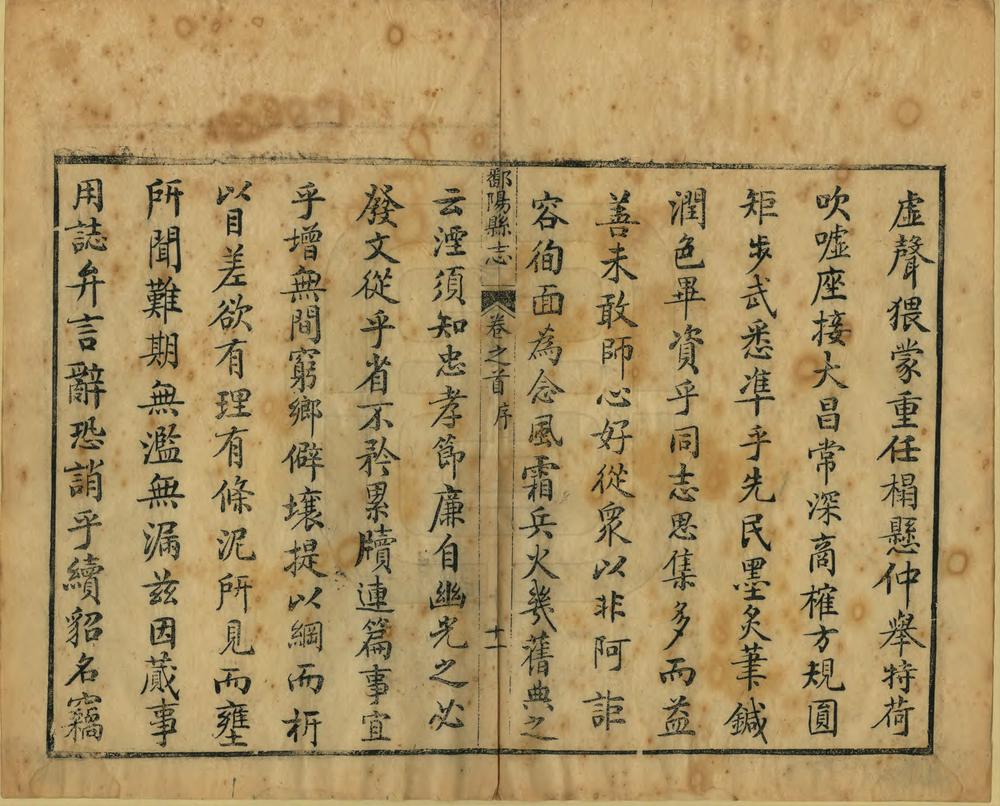 虛聲猥蒙重任榻懸仲舉特荷
吹噓座接大昌常深商榷方規圓
矩步武悉準乎先民墨炙筆鍼
潤色畢資乎同志思集多而益
善未敢師心好從衆以非阿詎
容徇面為念風霜兵火幾舊典之
鄱陽縣志 卷之首 序 十一
云湮須知忠孝節廉自幽光之必
發文從乎省不矜累牘連篇事宜
乎增無間窮鄉僻壤提以綱而析
以目差欲有理有條泥所見而壅
所聞難期無濫無漏茲因蕆事
用誌弁言辭恐誚乎續貂名竊